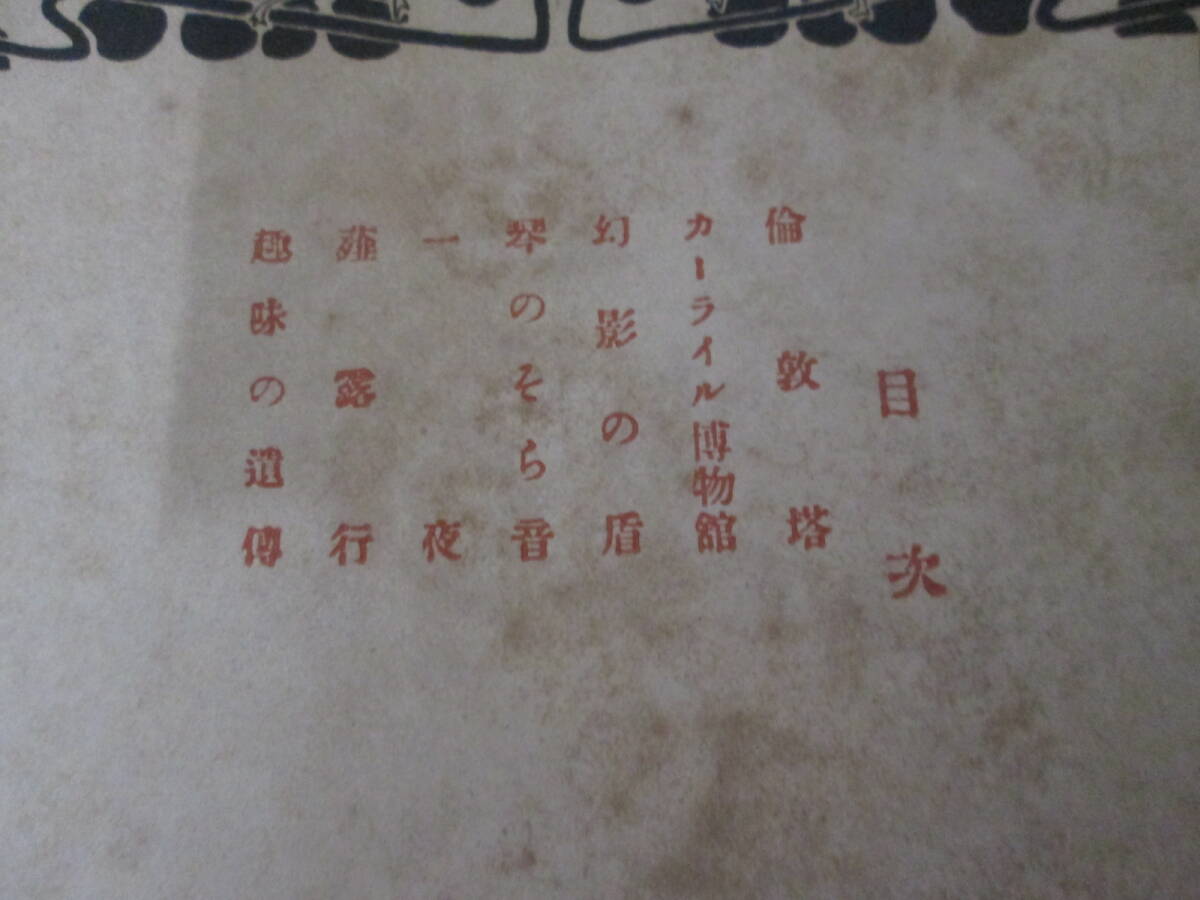 目次
倫敦塔
カーライル博物館
幻影の盾
琴のそら音
一夜
薤露行
趣味の遺傳